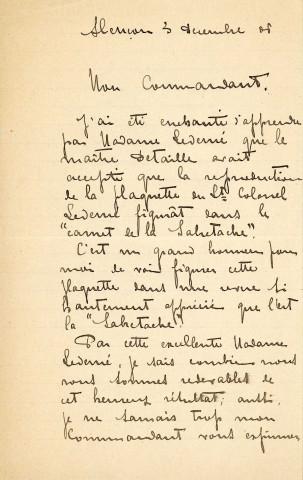 Alençon 3 decembre 08
Mon Commandant.
J'ai été enchanté d'apprendre
par Madame Lederné que le
maître Detaille avait
accepté que la reproduction
de la plaquette du Lt Colonel
Lederné figurât dans le
"carnet de la Sabretache".
C'est un grand honneur pour
moi de voir figurer cette
plaquette dans une revue si
hautement appréciée que l'est
la "Sabretache".
Par cette excellente Madame
Lederné, je sais combien nous
vous sommes redevables de
cet heureux résultat; aussi
je ne saurais trop mon
Commandant vous exprimer